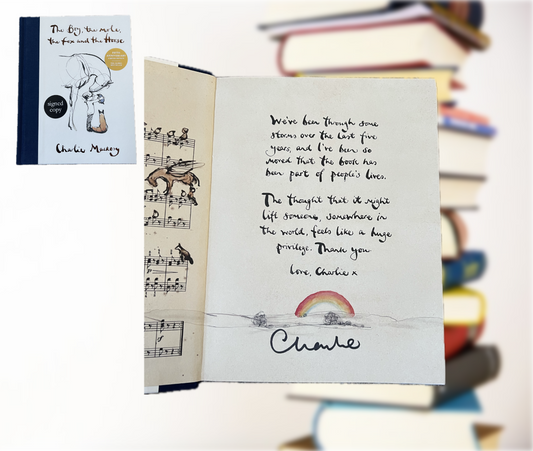 The Boy, the mole,
the fox and the Horse
signed
copy
Charlie Mackesy
We've been through some
storms over the last five
years, and I've been so
moved that the book has
been part of people's lives.
The thought that it might
lift someone, somewhere in
the world, feels like a huge
privilege. Thank you
Love, Charlie x
Charlie